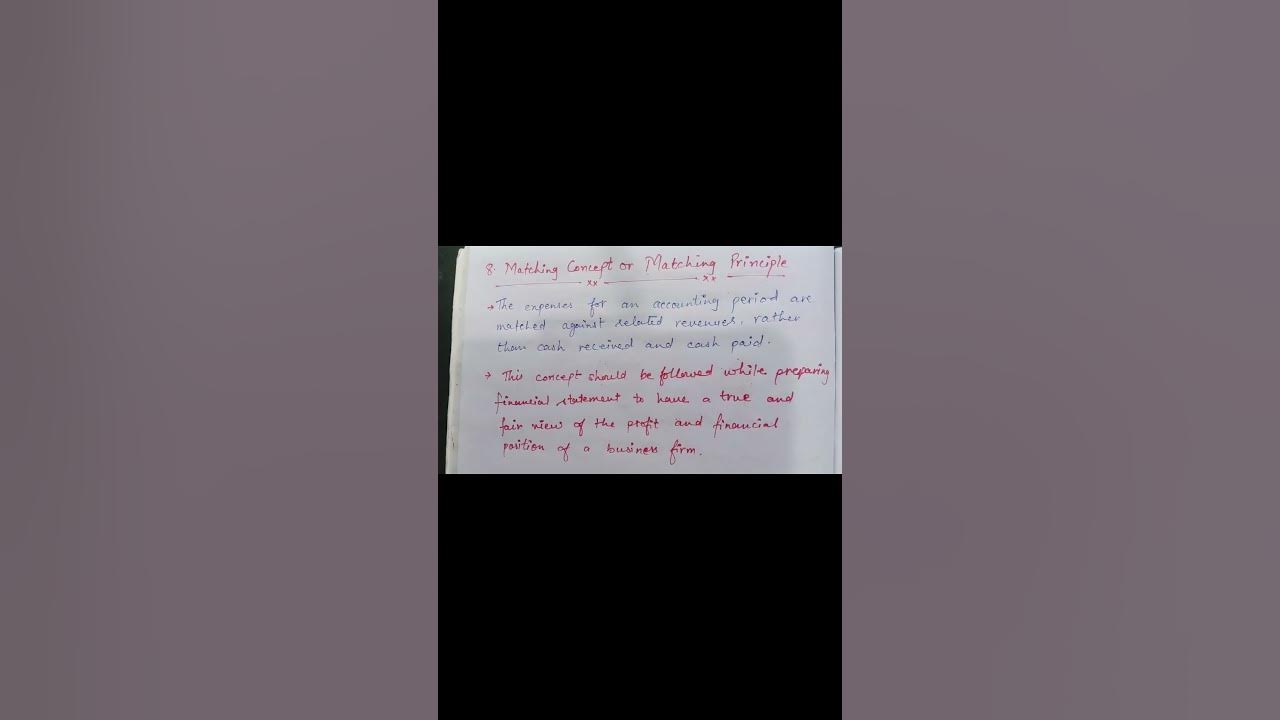 8. Matching Concept or Matching Principle
xx xx
→ The expenses for an accounting period are
matched against related revenues, rather
than cash received and cash paid.
→ This concept should be followed while preparing
financial statement to have a true and
fair view of the profit and financial
position of a business firm.